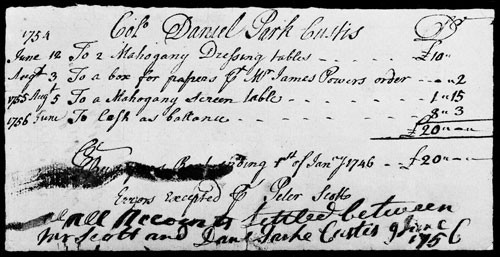 1754 Colo. Daniel Park Custis Dr
June 12 To 2 Mahogany Dressing tables - - - - - £10 " "
Augt 3 To a box for papers pr Mr James Powers order - - - " " 2
1755 Augt 5 To a Mahogany Screen table - - - - - - 1 " 15
1756 June To Cash as ballance - - - - - - 8 " 3
£20 " " "
Cr
ending 1st of Jany 1746 - - £20 " " "
Errors Excepted pr Peter Scott
all Accounts Settled between
Mr Scott and Danl Parke Custis 9 June
1756